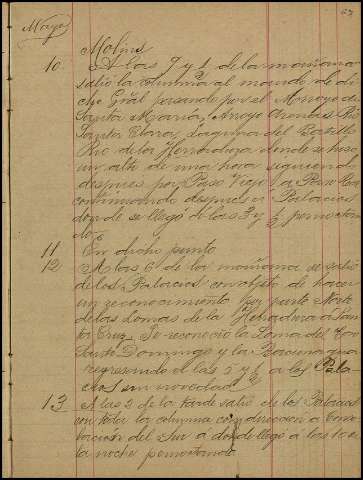 Mayo
Molins
10 A las 7 y ½ de la mañana
salio la columna al mando de di-
cho Gral pasando por el Arroyo de
Santa Maria, Arroyo Arenas, Rio
Santa Clara, Laguna del
Rio de la Herradura donde se hizo
un alto de una hora siguiendo
despues por Paso Viejo a
continuando despues a Palacios
donde se llegó a las 3 y ½ pernoctan-
do
11 En dicho punto
12 A las 6 de la mañana se salio
de los Palacios con objeto de hacer
un reconocimiento por parte Norte
de las Lomas de la Herradura a San-
ta Cruz. Se reconocio la Loma del
Santo Domingo y la
regresando a las 5 y ½ a los Pala-
cios sin novedad
13 A las 2 de la tarde salio de los Palacios
con toda la columna con direccion a Conso-
lacion del Sur á donde llegó á las 10 de
la noche pernoctando